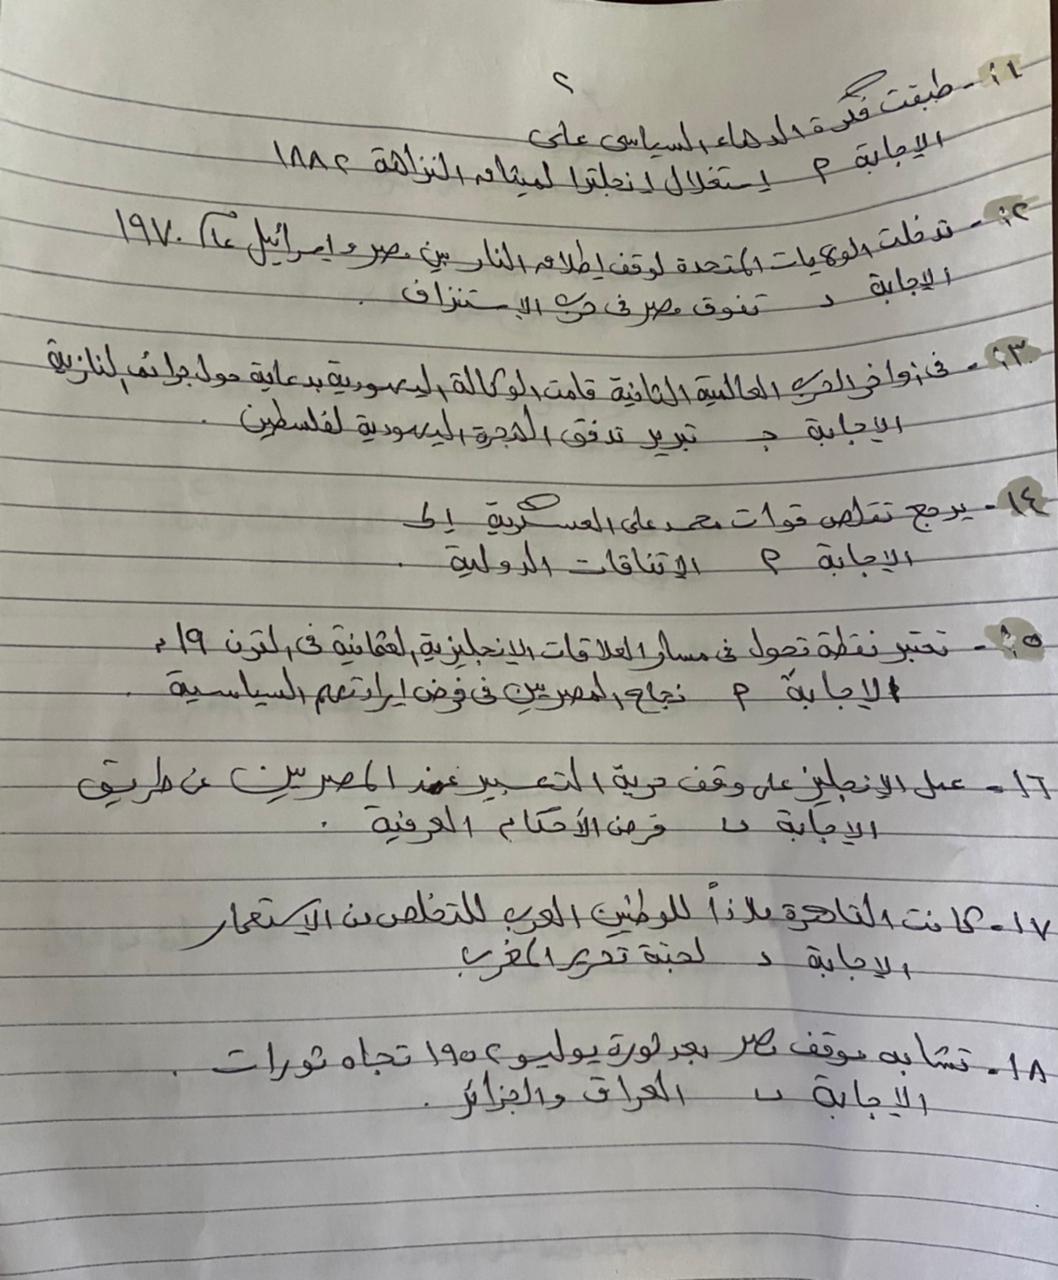 ٢
١١- طبقت فكرة الدهاء السياسى على
الإجابة م إستغلال إنجلترا لميثاق النزاهة ١٨٨٢
١٢- تدخلت الولايات المتحدة لوقف إطلاق النار بين مصر وإسرائيل عام ١٩٧٠
الإجابة د تفوق مصر فى حرب الإستنزاف .
١٣- فى أواخر الحرب العالمية الثانية قامت الوكالة اليهودية بدعاية حول جرائم النازية
الإجابة جـ تبرير تدفق الهجرة اليهودية لفلسطين .
١٤- يرجع تقلص قوات محمد على العسكرية إلى
الإجابة م الإتفاقات الدولية .
١٥- تعتبر نقطة تحول فى مسار العلاقات الإنجليزية العثمانية فى القرن ١٩م
الإجابة م نجاح المصريين فى فرض إرادتهم السياسية .
١٦- عمل الإنجليز على وقف حرية التعبير عند المصريين عن طريق
الإجابة ب فرض الأحكام العرفية .
١٧- كانت القاهرة ملاذاً للوطنين العرب للتخلص من الاستعمار
الإجابة د لجنة تحرير المغرب
١٨- تشابه موقف مصر بعد ثورة يوليو ١٩٥٢ تجاه ثورات .
الإجابة ب العراق والجزائر .